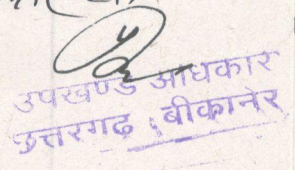 उपखण्ड अधिकारी
छत्तरगढ़ : बीकानेर